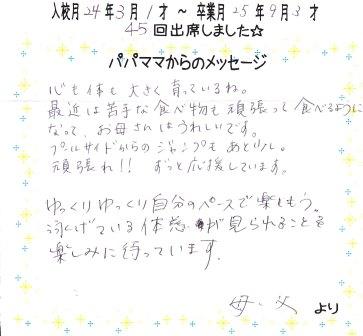 入校月24年3月1才～卒業月25年9月3才
45回出席しました☆
パパママからのメッセージ
心も体も大きく育っているね。
最近は苦手な食べ物も頑張って食べるように
なって、お母さんはうれしいです。
プールサイドからのジャンプもあと少し。
頑張れ!! ずっと応援しています。
ゆっくりゆっくり自分のペースで楽しもう。
泳げている体感が見られることを
楽しみに待っています。
母・父より